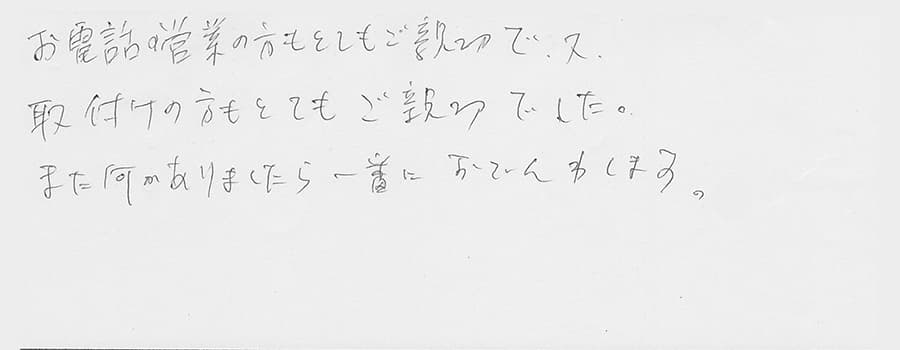 お電話の営業の方もとてもご親切で、又、
取付けの方もとてもご親切でした。
また何かありましたら一番におでんわします。